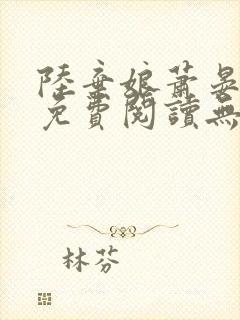 陸棄娘蕭晏
免費閱讀無
林芬